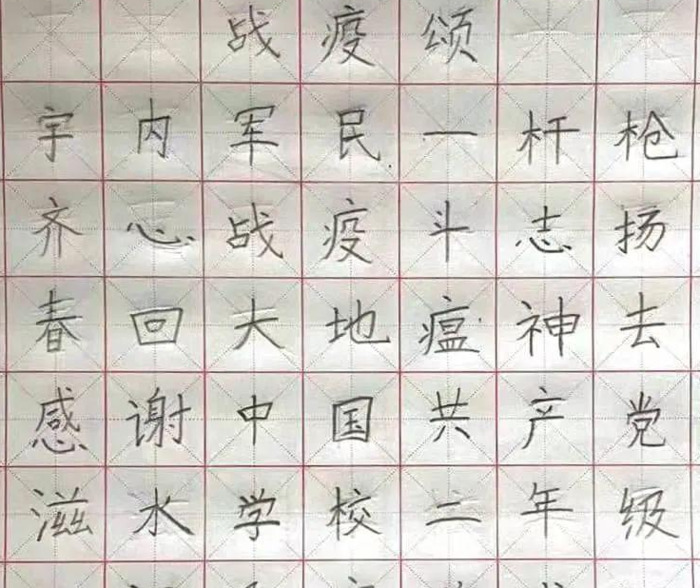 战疫颂
宇内军民一杆枪
齐心战疫斗志扬
春回大地瘟神去
感谢中国共产党
滋水学校二年级